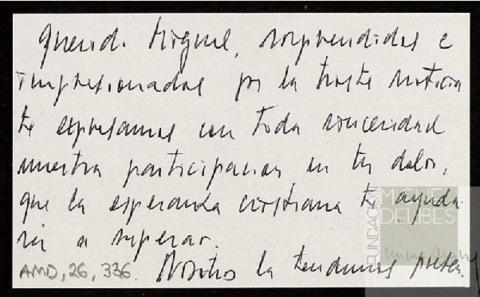 Querido Miguel, sorprendidos e
impresionados por la triste noticia
te expresamos con toda sinceridad
nuestra participacion en tu dolor,
que la esperanza cristiana te ayuda
rá a superar.
Nosotros la tendremos presen
AMD, 26, 336.
FUNDACIÓN
MIGUEL
DELIBES